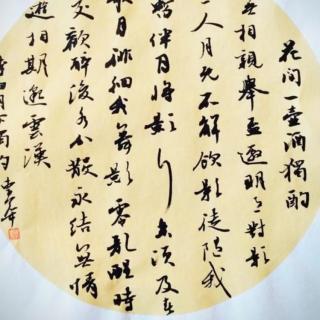 花間一壺酒獨酌
無相親舉盃邀明月對影
三人月既不解飲影徒隨我
暫伴月將影行樂須及春
月徘徊我舞影零亂醒時
交歡醉後各分散永結無情
遊相期邈雲漢